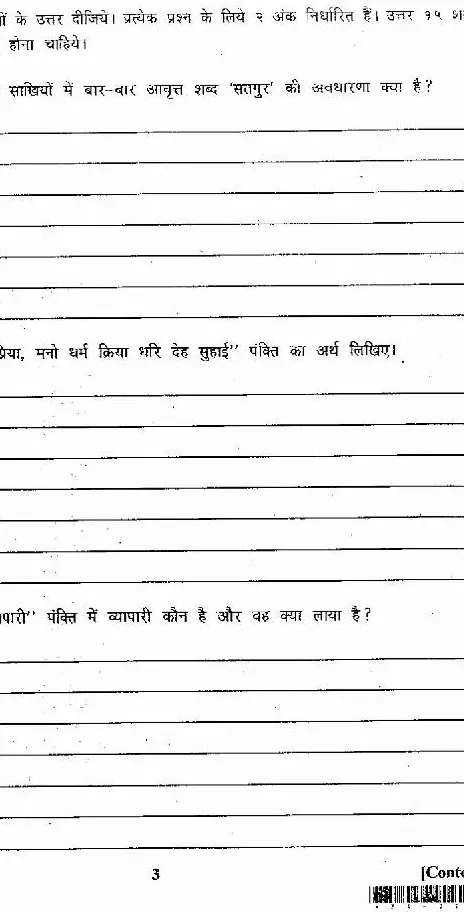 के उत्तर दीजिये। प्रत्येक प्रश्न के लिये २ अंक निर्धारित हैं। उत्तर १५
होना चाहिये।
साखियों में बार-बार आवृत्त शब्द 'सतगुर' की अवधारणा क्या है?
मनो धर्म क्रिया धरि देह सुहाई" पंक्ति का अर्थ लिखिए।
पंक्ति में व्यापारी कौन है और वह क्या लाया है?
3